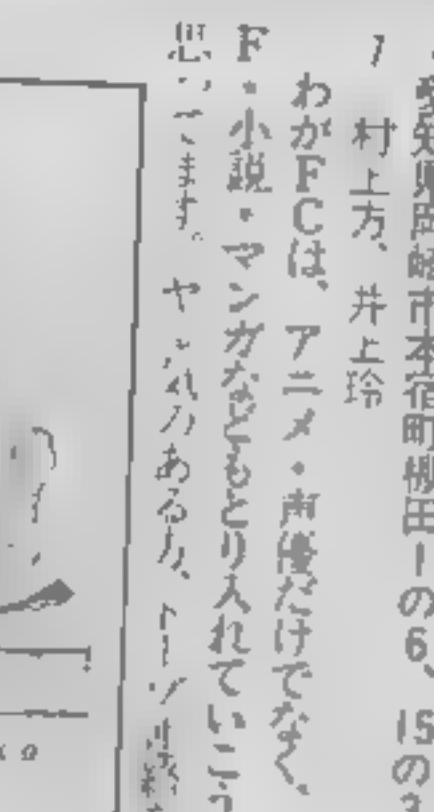 愛知県岡崎市本宿町棚田1の6、15の3
7 村上方、井上玲
わがFCは、アニメ・声優だけでなく、
F・小説・マンガなどもとり入れていこう
思ってます。ヤル気のある方、